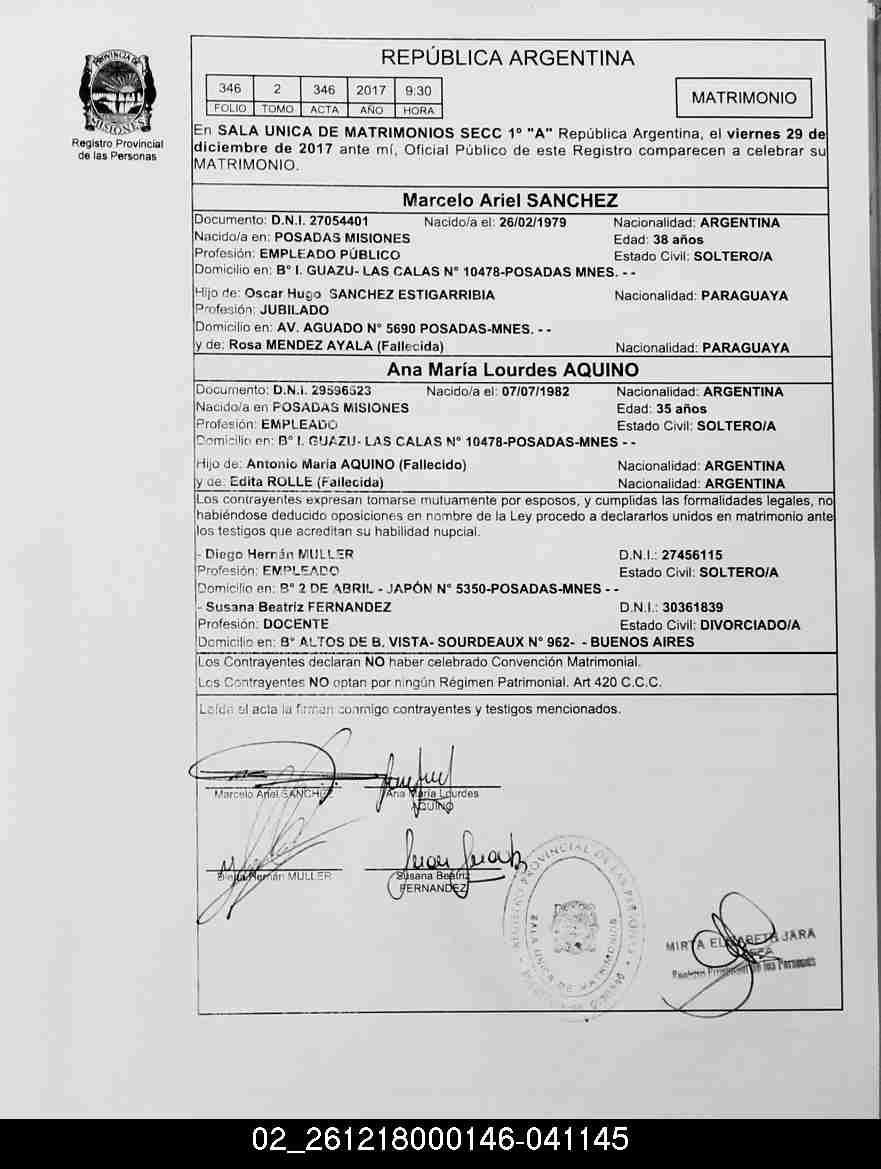 PROVINCIA DE
MISIONES
Registro Provincial
de las Personas
REPÚBLICA ARGENTINA
346 2 346 2017 9:30
FOLIO TOMO ACTA AÑO HORA
MATRIMONIO
En SALA UNICA DE MATRIMONIOS SECC 1º "A" República Argentina, el viernes 29 de
diciembre de 2017 ante mí, Oficial Público de este Registro comparecen a celebrar su
MATRIMONIO.
Marcelo Ariel SANCHEZ
Documento: D.N.I. 27054401 Nacido/a el: 26/02/1979 Nacionalidad: ARGENTINA
Nacido/a en: POSADAS MISIONES Edad: 38 años
Profesión: EMPLEADO PÚBLICO Estado Civil: SOLTERO/A
Domicilio en: B° I. GUAZU- LAS CALAS N° 10478-POSADAS MNES. - -
Hijo de: Oscar Hugo SANCHEZ ESTIGARRIBIA Nacionalidad: PARAGUAYA
Profesión: JUBILADO
Domicilio en: AV. AGUADO N° 5690 POSADAS-MNES. - -
y de: Rosa MENDEZ AYALA (Fallecida) Nacionalidad: PARAGUAYA
Ana María Lourdes AQUINO
Documento: D.N.I. 29596523 Nacido/a el: 07/07/1982 Nacionalidad: ARGENTINA
Nacido/a en POSADAS MISIONES Edad: 35 años
Profesión: EMPLEADO Estado Civil: SOLTERO/A
Domicilio en: B° I. GUAZU- LAS CALAS N° 10478-POSADAS-MNES - -
Hijo de: Antonio María AQUINO (Fallecido) Nacionalidad: ARGENTINA
y de: Edita ROLLE (Fallecida) Nacionalidad: ARGENTINA
Los contrayentes expresan tomarse mutuamente por esposos, y cumplidas las formalidades legales, no
habiéndose deducido oposiciones en nombre de la Ley procedo a declararlos unidos en matrimonio ante
los testigos que acreditan su habilidad nupcial.
- Diego Hernán MULLER D.N.I.: 27456115
Profesión: EMPLEADO Estado Civil: SOLTERO/A
Domicilio en: B° 2 DE ABRIL - JAPÓN N° 5350-POSADAS-MNES - -
- Susana Beatriz FERNANDEZ D.N.I.: 30361839
Profesión: DOCENTE Estado Civil: DIVORCIADO/A
Domicilio en: B° ALTOS DE B. VISTA- SOURDEAUX N° 962- - BUENOS AIRES
Los Contrayentes declaran NO haber celebrado Convención Matrimonial.
Los Contrayentes NO optan por ningún Régimen Patrimonial. Art 420 C.C.C.
Leída el acta la firman conmigo contrayentes y testigos mencionados.
Marcelo Ariel SANCHEZ Ana María Lourdes
AQUINO
Diego Hernán MULLER Susana Beatriz
FERNANDEZ
REGISTRO PROVINCIAL DE LAS PERSONAS
SALA UNICA DE MATRIMONIOS
MIRTA ELIZABETH JARA
Registro Provincial de las Personas
02_261218000146-041145